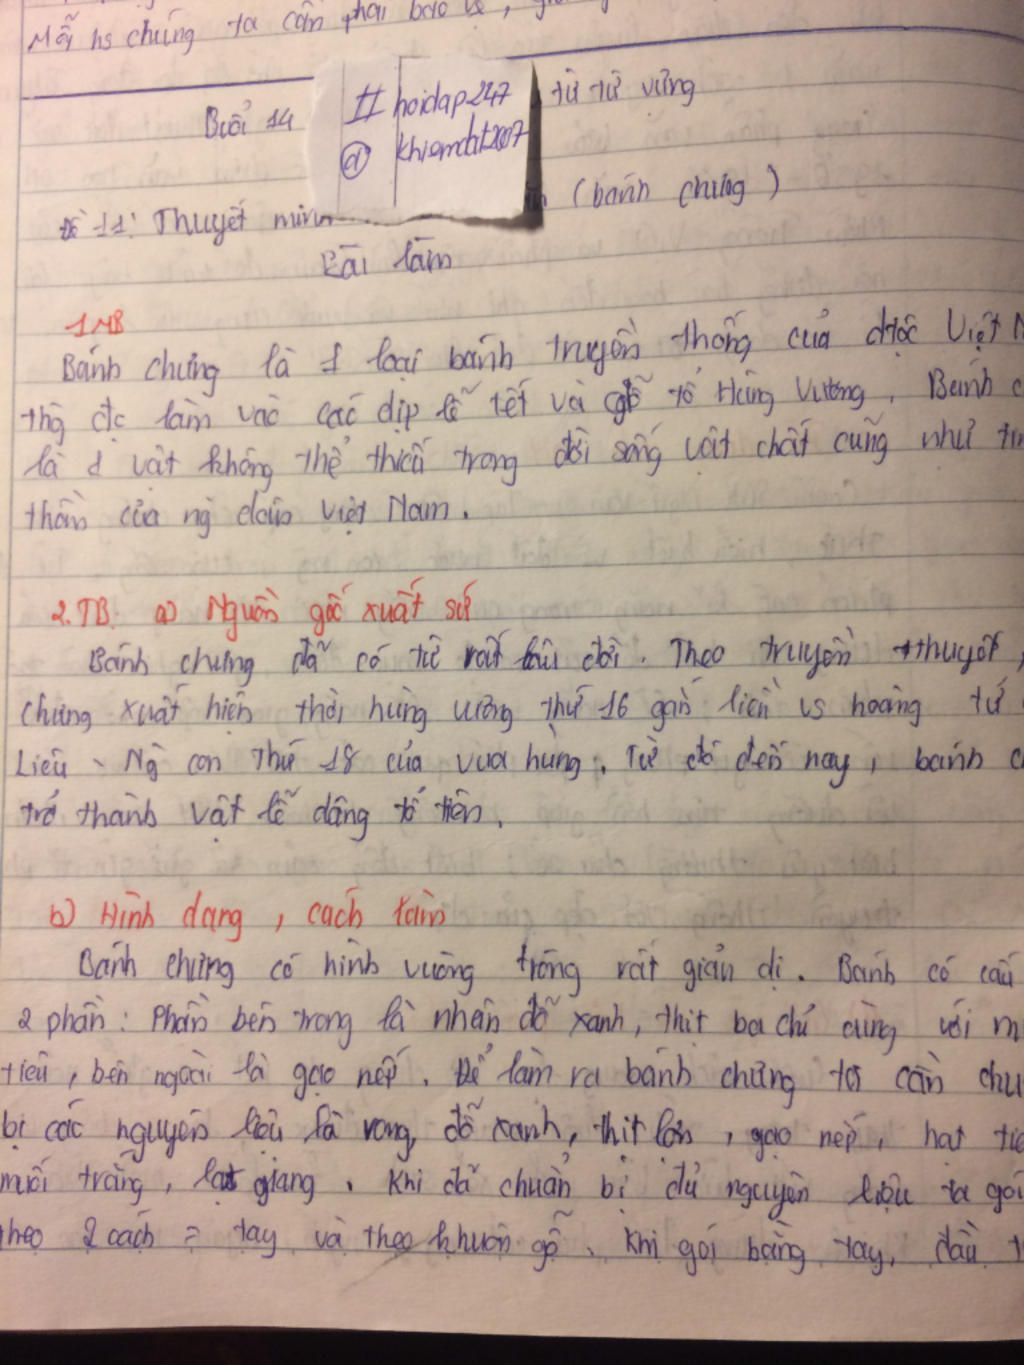 Mỗi hs chúng ta cần phải bảo vệ,
Buổi 14 # hoidap247 từ từ vựng
@ khiemdat2007
Đề 11: Thuyết minh (bánh chưng)
Bài làm
1.MB
Bánh chưng là 1 loại bánh truyền thống của dtộc Việt
thg đc làm vào các dịp lễ tết và giỗ tổ Hùng Vương. Bánh
là 1 vật không thể thiếu trong đời sống vật chất cũng như
thần của ng dân Việt Nam.
2.TB: a) Nguồn gốc xuất sứ
Bánh chưng đã có từ rất lâu đời. Theo truyền thuyết,
chưng xuất hiện thời hùng vương thứ 16 gắn liền vs hoàng tử
Liêu - Ng con thứ 18 của vua hùng. Từ đó đến nay, bánh
trở thành vật lễ dâng tổ tiên.
b) Hình dạng, cách làm
Bánh chưng có hình vuông trông rất giản dị. Bánh có cấu
2 phần: Phần bên trong là nhân đỗ xanh, thịt ba chỉ cùng với
tiêu, bên ngoài là gạo nếp. Để làm ra bánh chưng ta cần
bị các nguyên liệu là rong, đỗ xanh, thịt lợn, gạo nếp, hạt
muối trắng, lạt giang. Khi đã chuẩn bị đủ nguyên liệu ta gói
theo 2 cách = tay và theo khuôn gỗ. Khi gói bằng tay, đầu